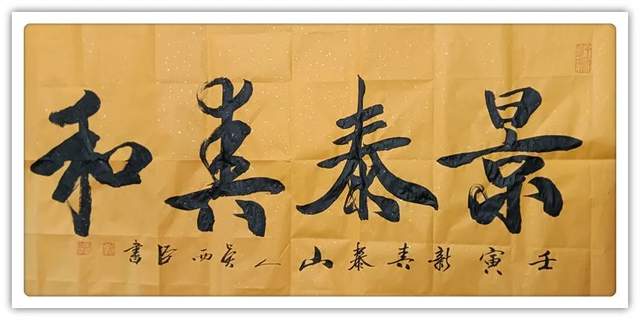 景泰美和
壬寅新春泰山人吴西臣書